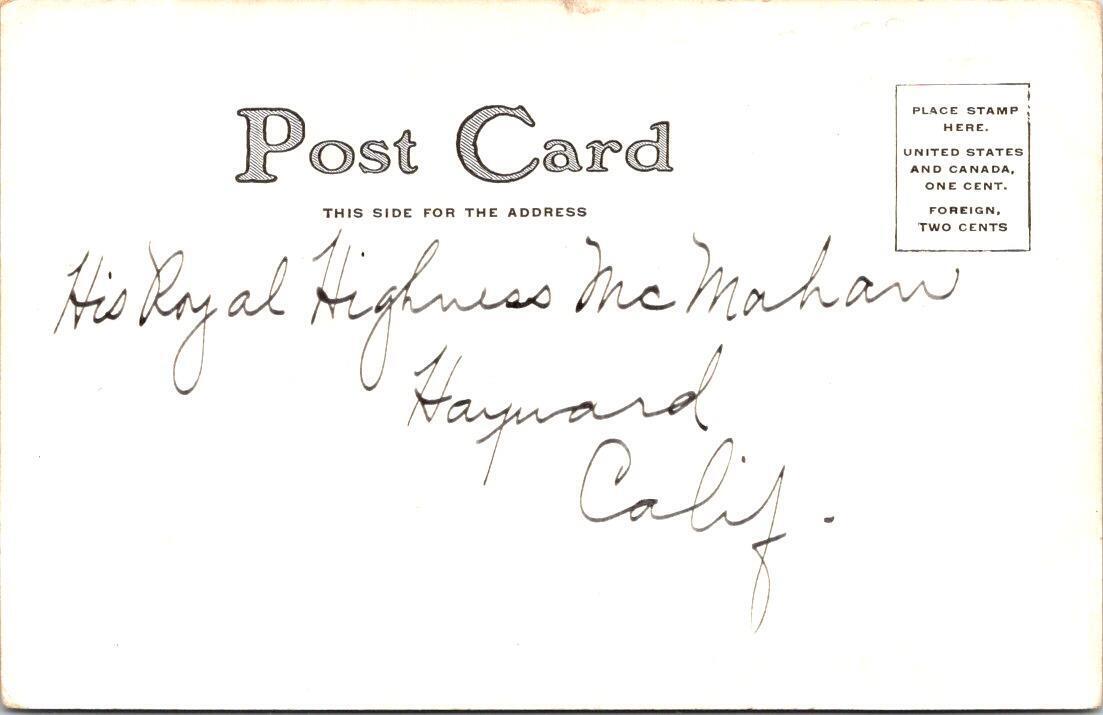 Post Card
THIS SIDE FOR THE ADDRESS
PLACE STAMP
HERE.
UNITED STATES
AND CANADA,
ONE CENT.
FOREIGN,
TWO CENTS
His Royal Highness McMahan
Hayward
Calif.